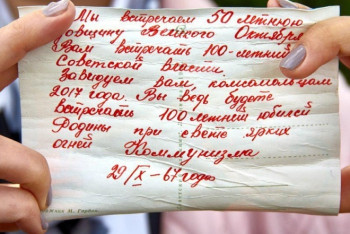 Мы встречаем 50 летнюю
овщину Великого Октября
Вам встречать 100-летний
Советской власти.
Завидуем вам, комсомольцам
2017 года. Вы ведь будете
встречать 100 летний юбилей
Родины при свете ярких
огней Коммунизма
29/IX-67 года